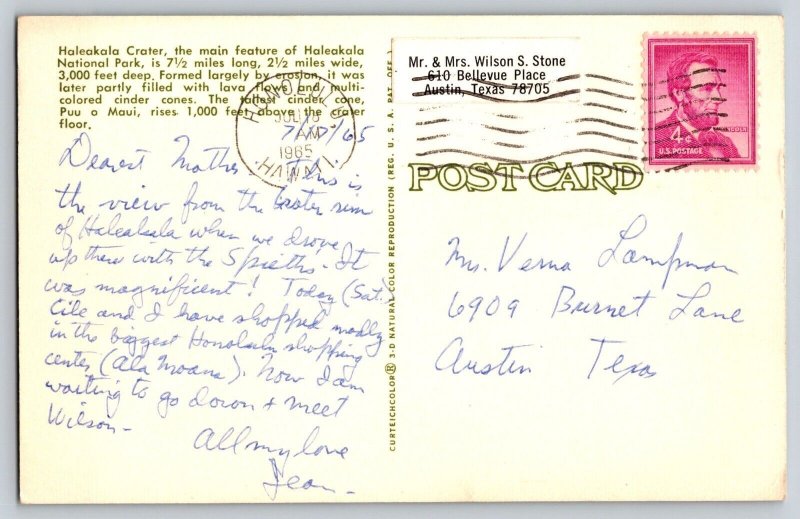 Haleakala Crater, the main feature of Haleakala
National Park, is 7½ miles long, 2½ miles wide,
3,000 feet deep. Formed largely by erosion, it was
later partly filled with lava flows and multi-
colored cinder cones. The tallest cinder cone,
Puu o Maui, rises 1,000 feet above the crater
floor.
HONOLULU
JUL 18
AM
1965
HAWAII
7/17/65
Dearest Mother This is
the view from the crater rim
of Haleakala when we drove
up there with the Spieths. It
was magnificent! Today (Sat.)
Cile and I have shopped madly
in the biggest Honolulu shopping
center (Ala Moana). Now I am
waiting to go down + meet
Wilson-
All my love
Jean-
CURTEICHCOLOR® 3-D NATURAL COLOR REPRODUCTION (REG. U.S.A. PAT. OFF.)
Mr. & Mrs. Wilson S. Stone
610 Bellevue Place
Austin, Texas 78705
LINCOLN
4¢
U.S. POSTAGE
POST CARD
Ms. Verna Lampman
6909 Burnet Lane
Austin Texas